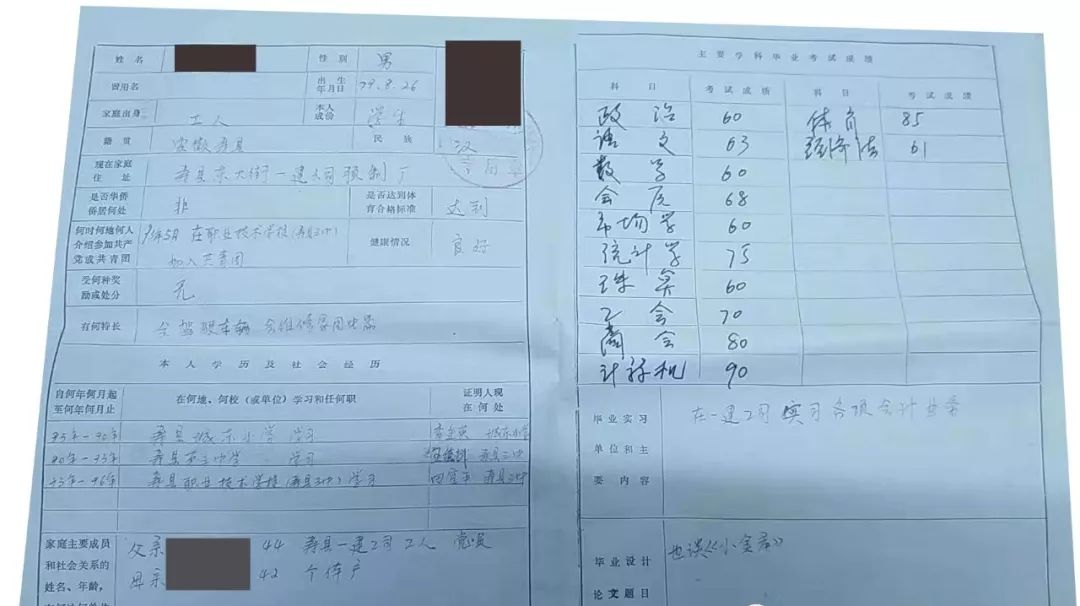 姓名 性别 男
曾用名 出生年月日 79.8.26
家庭出身 工人 本人成份 学生
籍贯 安徽寿县 民族 汉
现在家庭住址 寿县东大街一建公司预制厂
是否华侨侨居何处 非 是否达到体育合格标准 达到
何时何地何人介绍参加共产党或共青团 在职业技术学校(寿县三中)加入共青团 健康情况 良好
受何种奖励或处分 无
有何特长 会驾驶车辆 会维修家用电器
本人学历及社会经历
自何年何月起至何年何月止 在何地、何校(或单位)学习和任何职 证明人现在何处
寿县城东小学 学习
90年-93年 寿县 中学 学习
93年-96年 寿县职业技术学校(寿县三中)学习 寿县三中
家庭主要成员和社会关系的姓名、年龄,
父亲 44 寿县一建公司 工人 党员
母亲 42 个体户
主要学科毕业考试成绩
科目 考试成绩 科目 考试成绩
政治 60 体育 85
语文 63 经济法 61
数学 60
会原 68
市场学 60
统计学 75
珠算 60
工会 70
商会 80
计算机 90
毕业实习单位和主要内容 在一建公司实习各项会计业务
毕业设计论文题目 也谈《小金库》